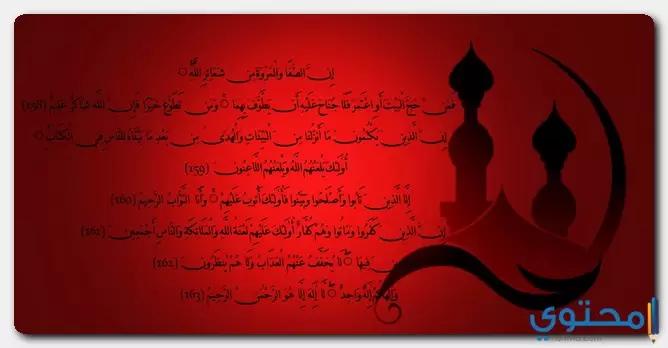 إِنَّ الصَّفَا وَالْمَرْوَةَ مِن شَعَائِرِ اللَّهِ ۖ
فَمَنْ حَجَّ الْبَيْتَ أَوِ اعْتَمَرَ فَلَا جُنَاحَ عَلَيْهِ أَن يَطَّوَّفَ بِهِمَا ۚ وَمَن تَطَوَّعَ خَيْرًا فَإِنَّ اللَّهَ شَاكِرٌ عَلِيمٌ (158)
إِنَّ الَّذِينَ يَكْتُمُونَ مَا أَنزَلْنَا مِنَ الْبَيِّنَاتِ وَالْهُدَىٰ مِن بَعْدِ مَا بَيَّنَّاهُ لِلنَّاسِ فِي الْكِتَابِ ۙ
أُولَٰئِكَ يَلْعَنُهُمُ اللَّهُ وَيَلْعَنُهُمُ اللَّاعِنُونَ (159)
إِلَّا الَّذِينَ تَابُوا وَأَصْلَحُوا وَبَيَّنُوا فَأُولَٰئِكَ أَتُوبُ عَلَيْهِمْ ۚ وَأَنَا التَّوَّابُ الرَّحِيمُ (160)
إِنَّ الَّذِينَ كَفَرُوا وَمَاتُوا وَهُمْ كُفَّارٌ أُولَٰئِكَ عَلَيْهِمْ لَعْنَةُ اللَّهِ وَالْمَلَائِكَةِ وَالنَّاسِ أَجْمَعِينَ (161)
فِيهَا ۖ لَا يُخَفَّفُ عَنْهُمُ الْعَذَابُ وَلَا هُمْ يُنظَرُونَ (162)
وَإِلَٰهُكُمْ إِلَٰهٌ وَاحِدٌ ۖ لَّا إِلَٰهَ إِلَّا هُوَ الرَّحْمَٰنُ الرَّحِيمُ (163)
محتوى